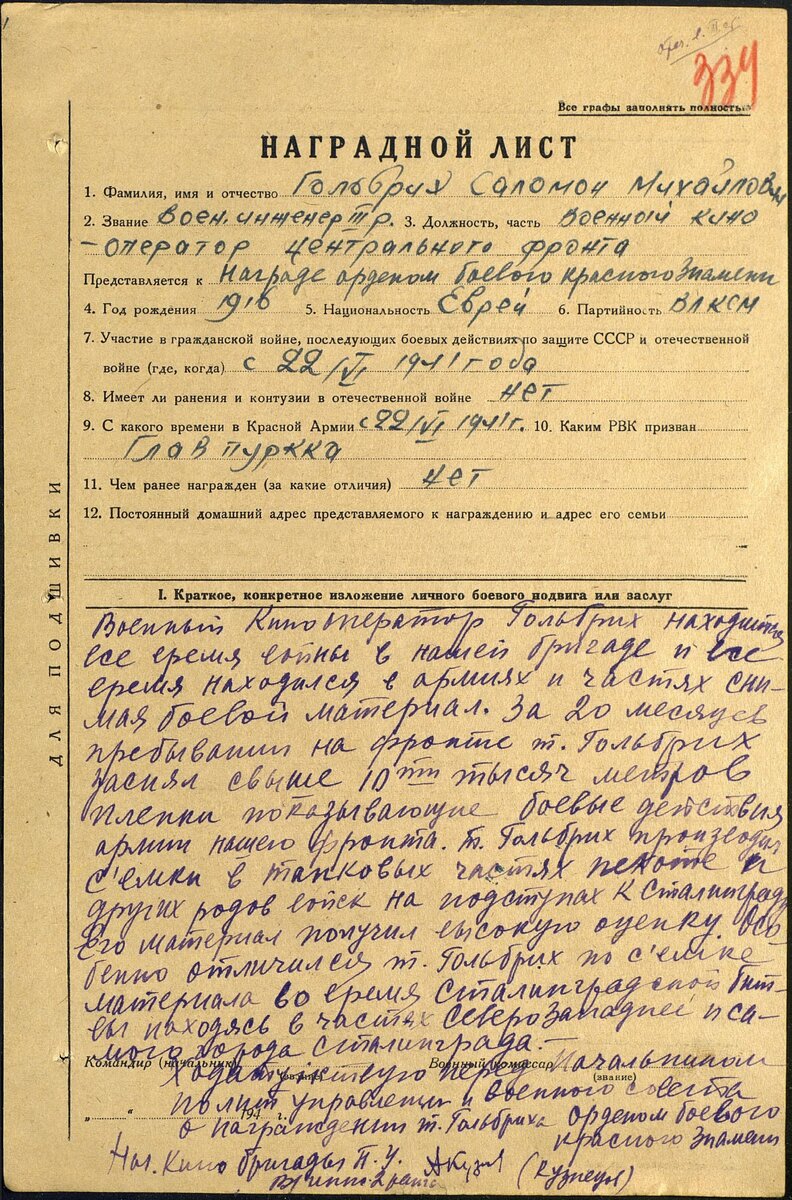 334
Все графы заполнять полностью
НАГРАДНОЙ ЛИСТ
1. Фамилия, имя и отчество Гольбрих Саломон Михайлович
2. Звание Воен.инженер III р. 3. Должность, часть Военный кино
-оператор Центрального фронта
Представляется к награде орденом боевого красного Знамени
4. Год рождения 1916 5. Национальность Еврей 6. Партийность ВЛКСМ
7. Участие в гражданской войне, последующих боевых действиях по защите СССР и отечественной
войне (где, когда) с 22/VI 1941 года
8. Имеет ли ранения и контузии в отечественной войне нет
9. С какого времени в Красной Армии с 22/VI 1941 г. 10. Каким РВК призван
Глав пуркка
11. Чем ранее награжден (за какие отличия) нет
12. Постоянный домашний адрес представляемого к награждению и адрес его семьи
ДЛЯ ПОДШИВКИ
I. Краткое, конкретное изложение личного боевого подвига или заслуг
Военный Кинооператор Гольбрих находится
все время войны в нашей бригаде и все
время находился в армиях и частях сни-
мая боевой материал. За 20 месяцев
пребывании на фронте т. Гольбрих
заснял свыше 10ти тысяч метров
пленки показывающие боевые действия
армии нашего фронта. т. Гольбрих производил
с'емки в танковых частях пехоте и
других родов войск на подступах к Сталинграду
Его материал получил высокую оценку. Осо-
бенно отличился т. Гольбрих по с'емке
материала во время Сталинградской бит-
вы находясь в частях северозападнее и са-
мого города Сталинграда.-
Командир (начальник) Военный комиссар
(звание) (звание)
Ходатайствую перед Начальником
полит управления и военного совета
„ “ 194 г.
о награждении т. Гольбриха орденом боевого
красного Знамени
Нач. Кино бригады П.У.
(Кузнецов)